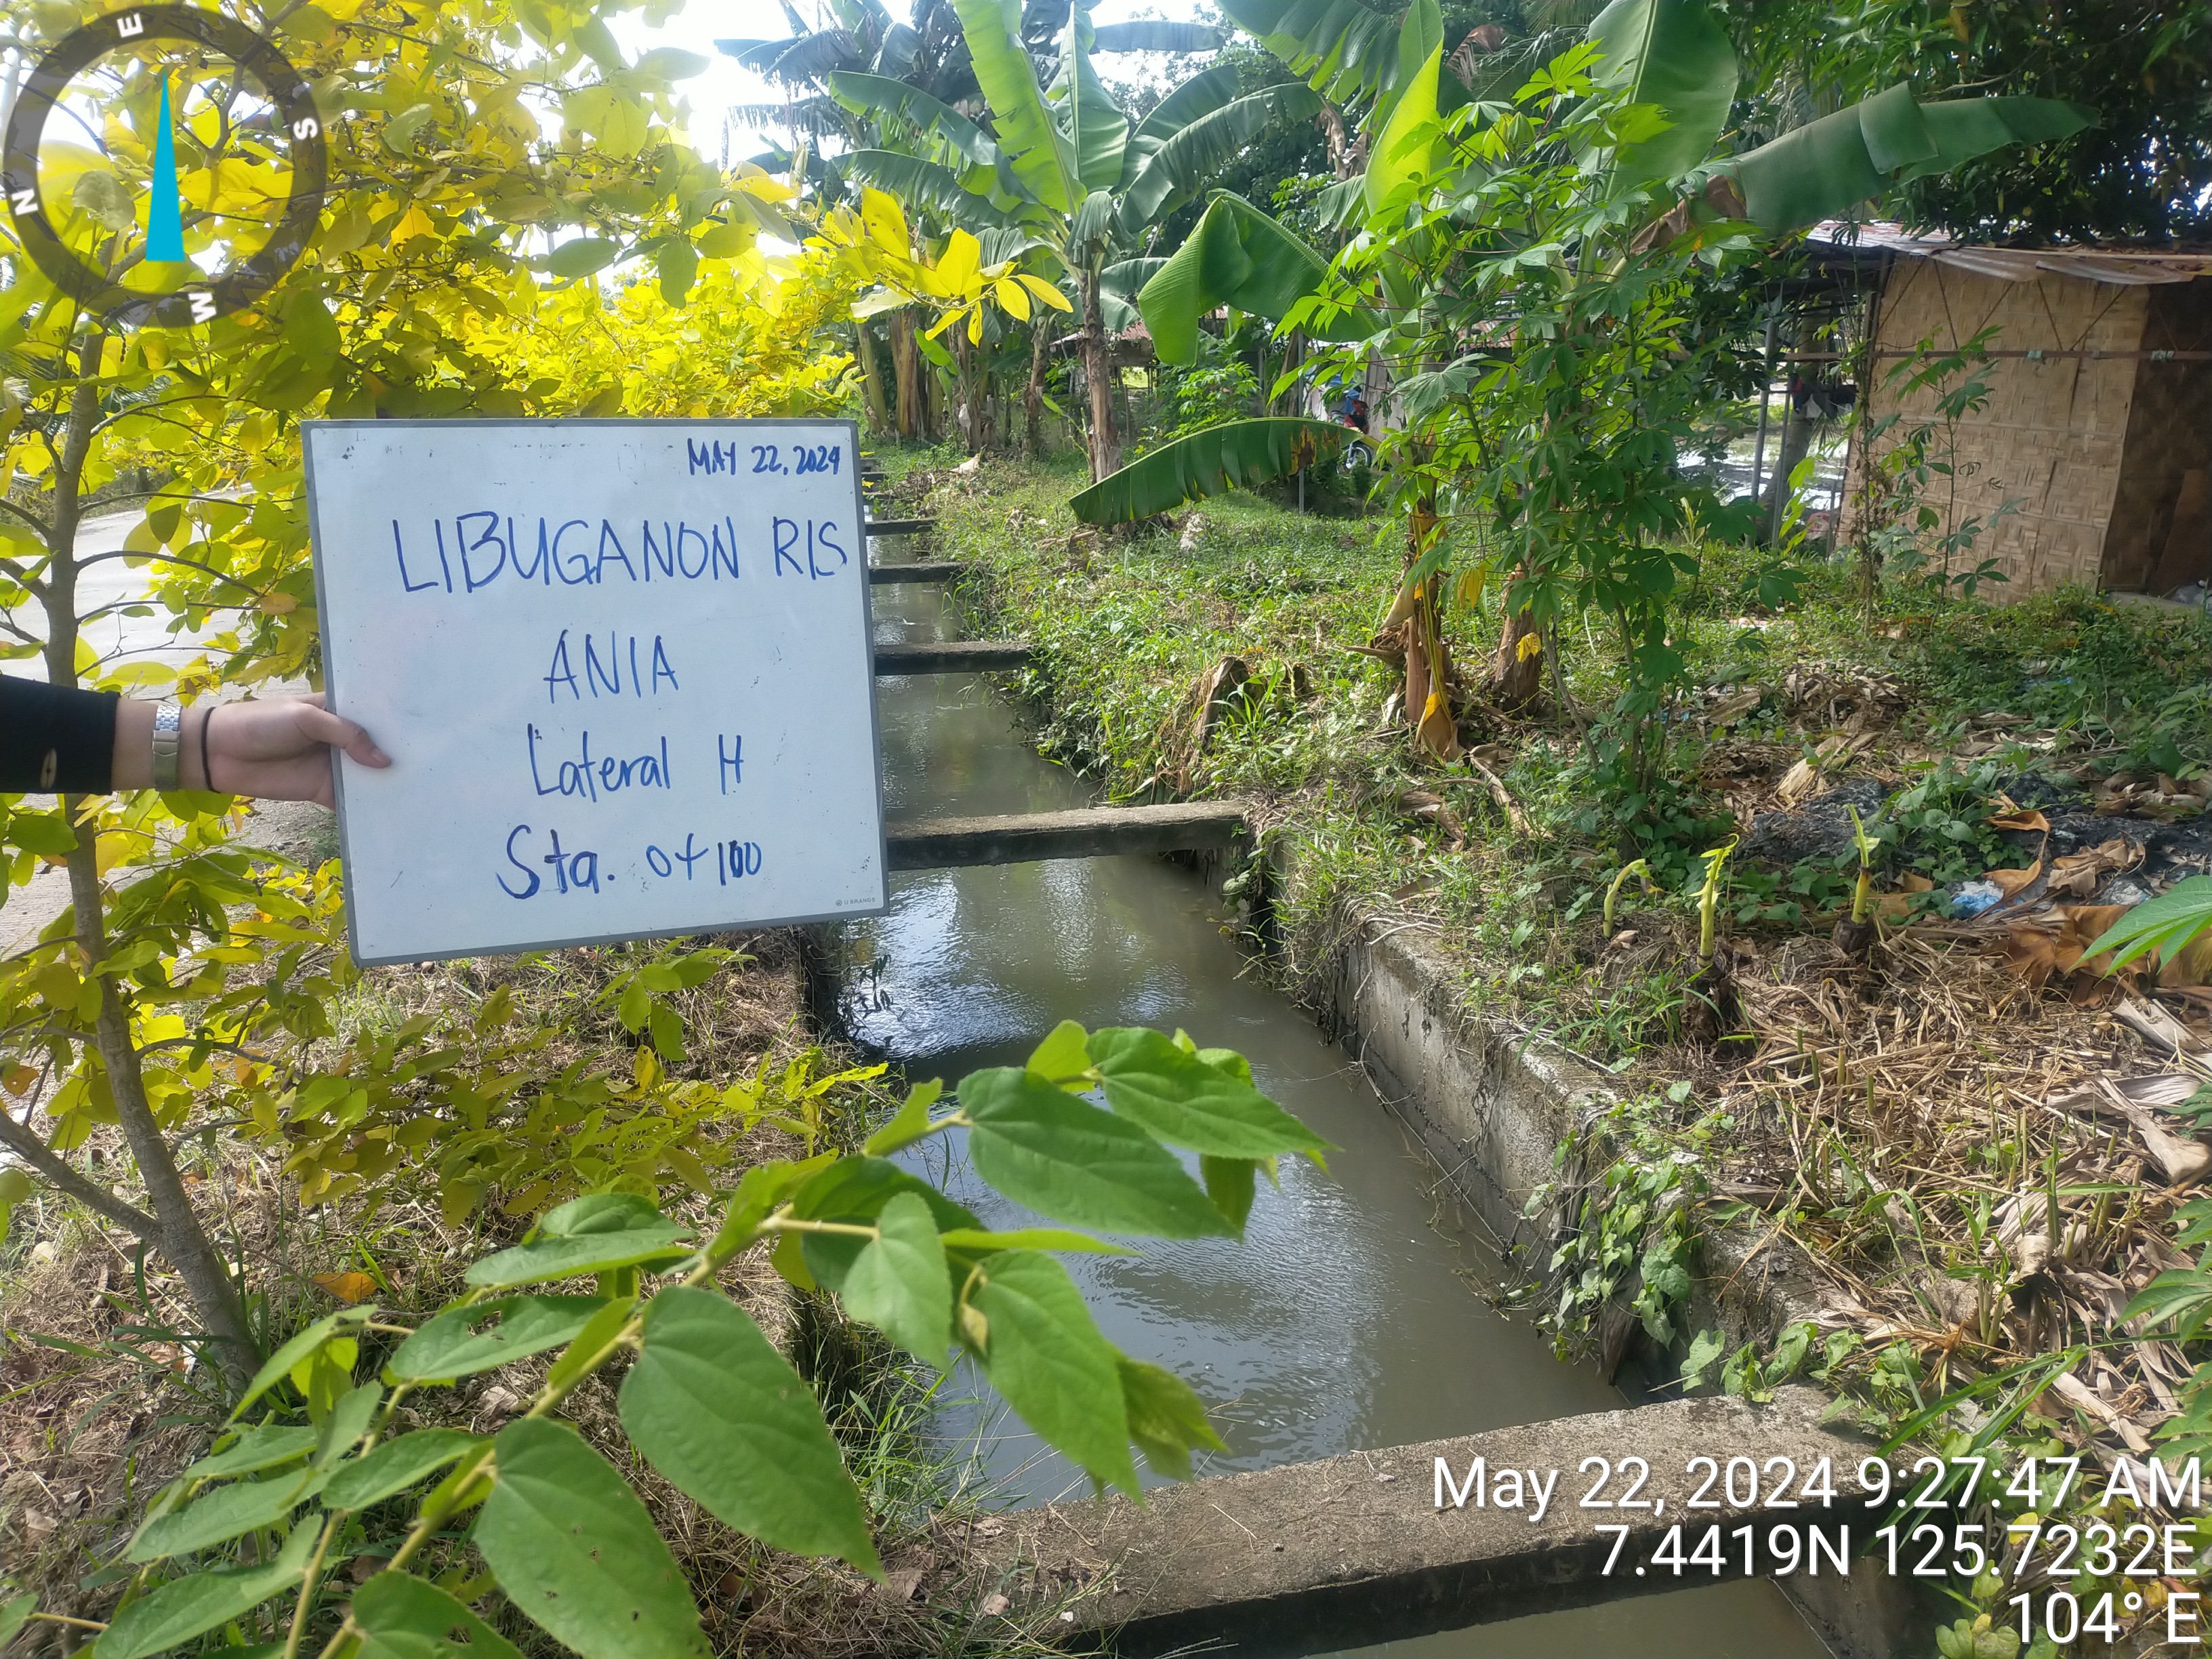 E
S
N
W
MAY 22, 2024
LIBUGANON RIS
ANIA
Lateral H
Sta. 0+100
U BRANDS
May 22, 2024 9:27:47 AM
7.4419N 125.7232E
104° E